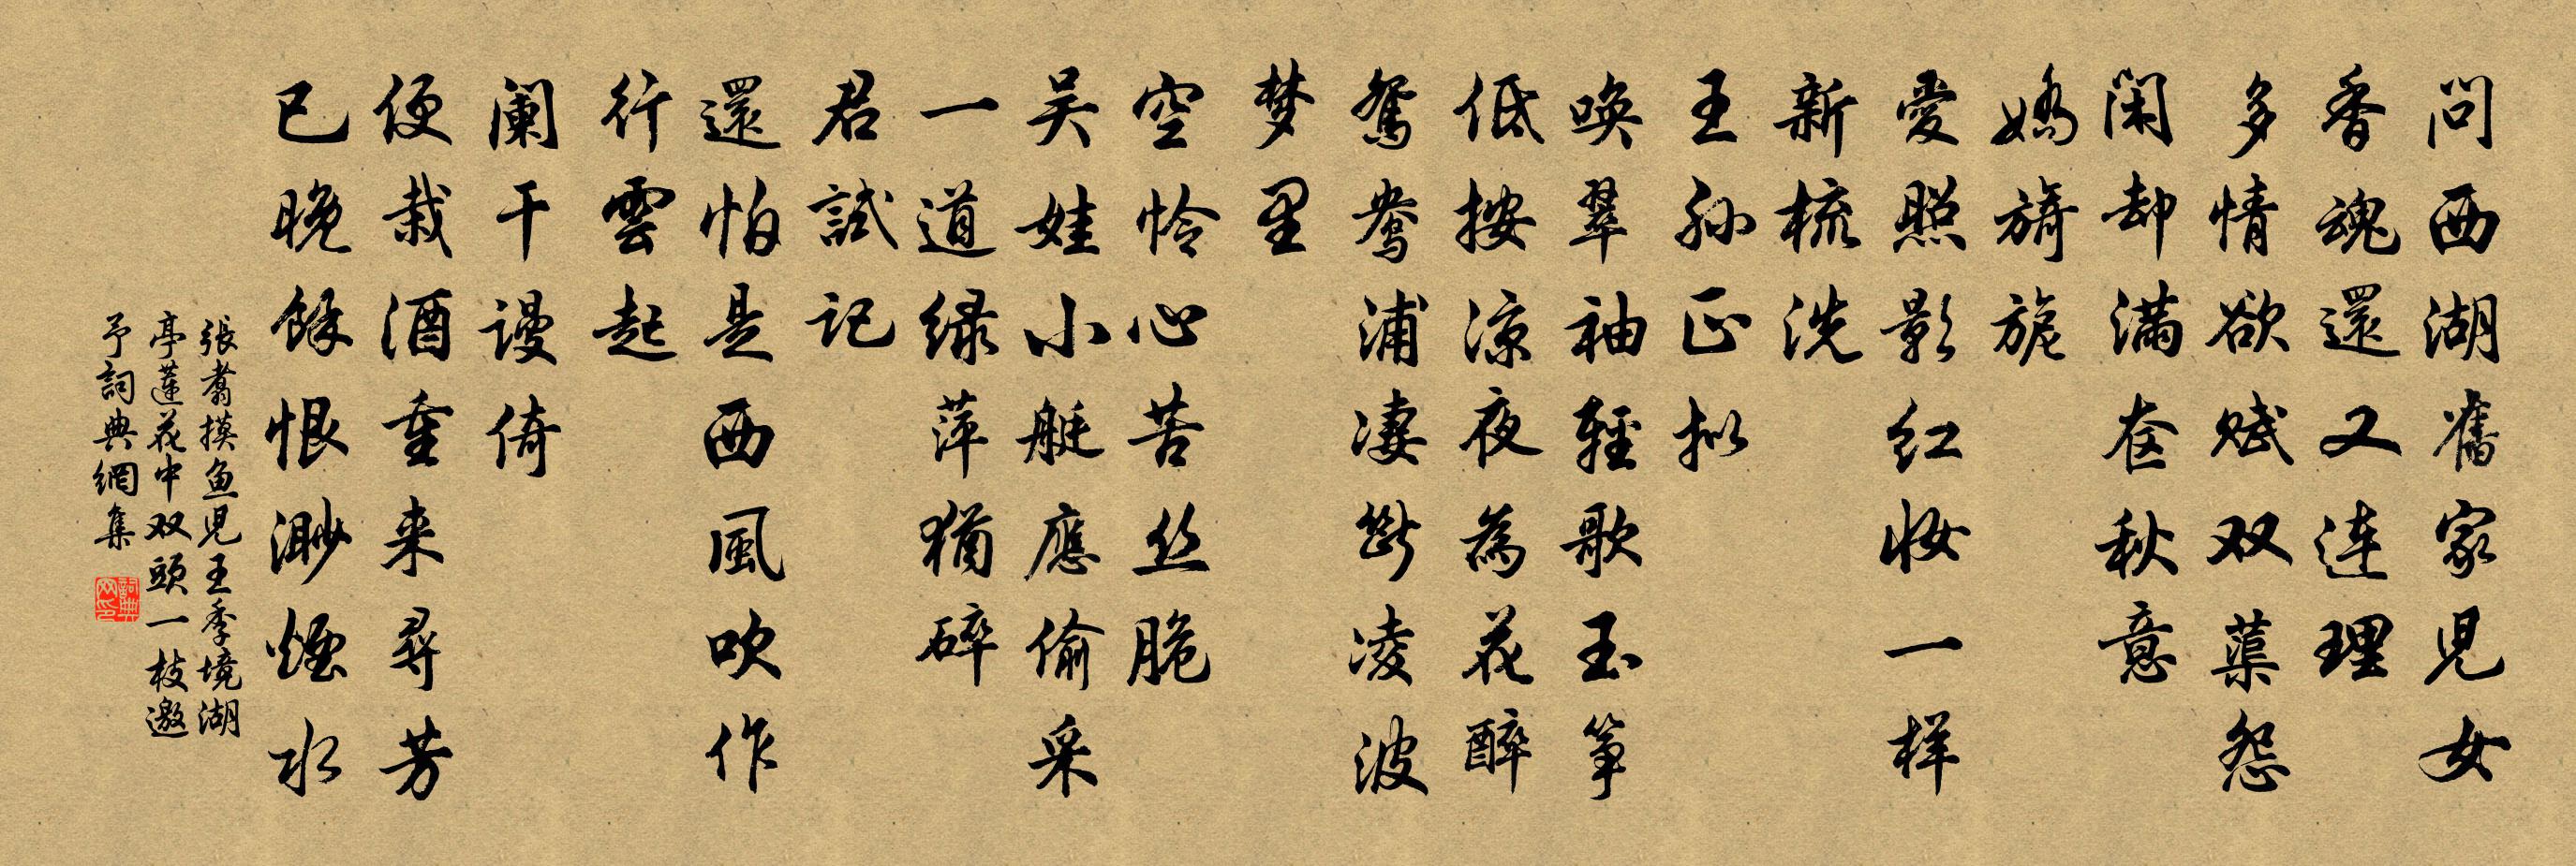 问西湖舊家児女
香魂還又连理
多情欲赋双蕖怨
闲却满奁秋意
娇旖旎
爱照影红妆一样
新梳洗
王孙正拟
唤翠袖輕歌玉筝
低按凉夜為花醉
鸳鸯浦凄断凌波
梦里
空怜心苦丝脆
吴娃小艇應偷采
一道绿萍猶碎
君試记
還怕是西風吹作
行雲起
阑干谩倚
便载酒重来尋芳
已晚餘恨渺烟水
張翥摸鱼児王季境湖
亭蓮花中双頭一枝邀
予詞典網集
詞典网印